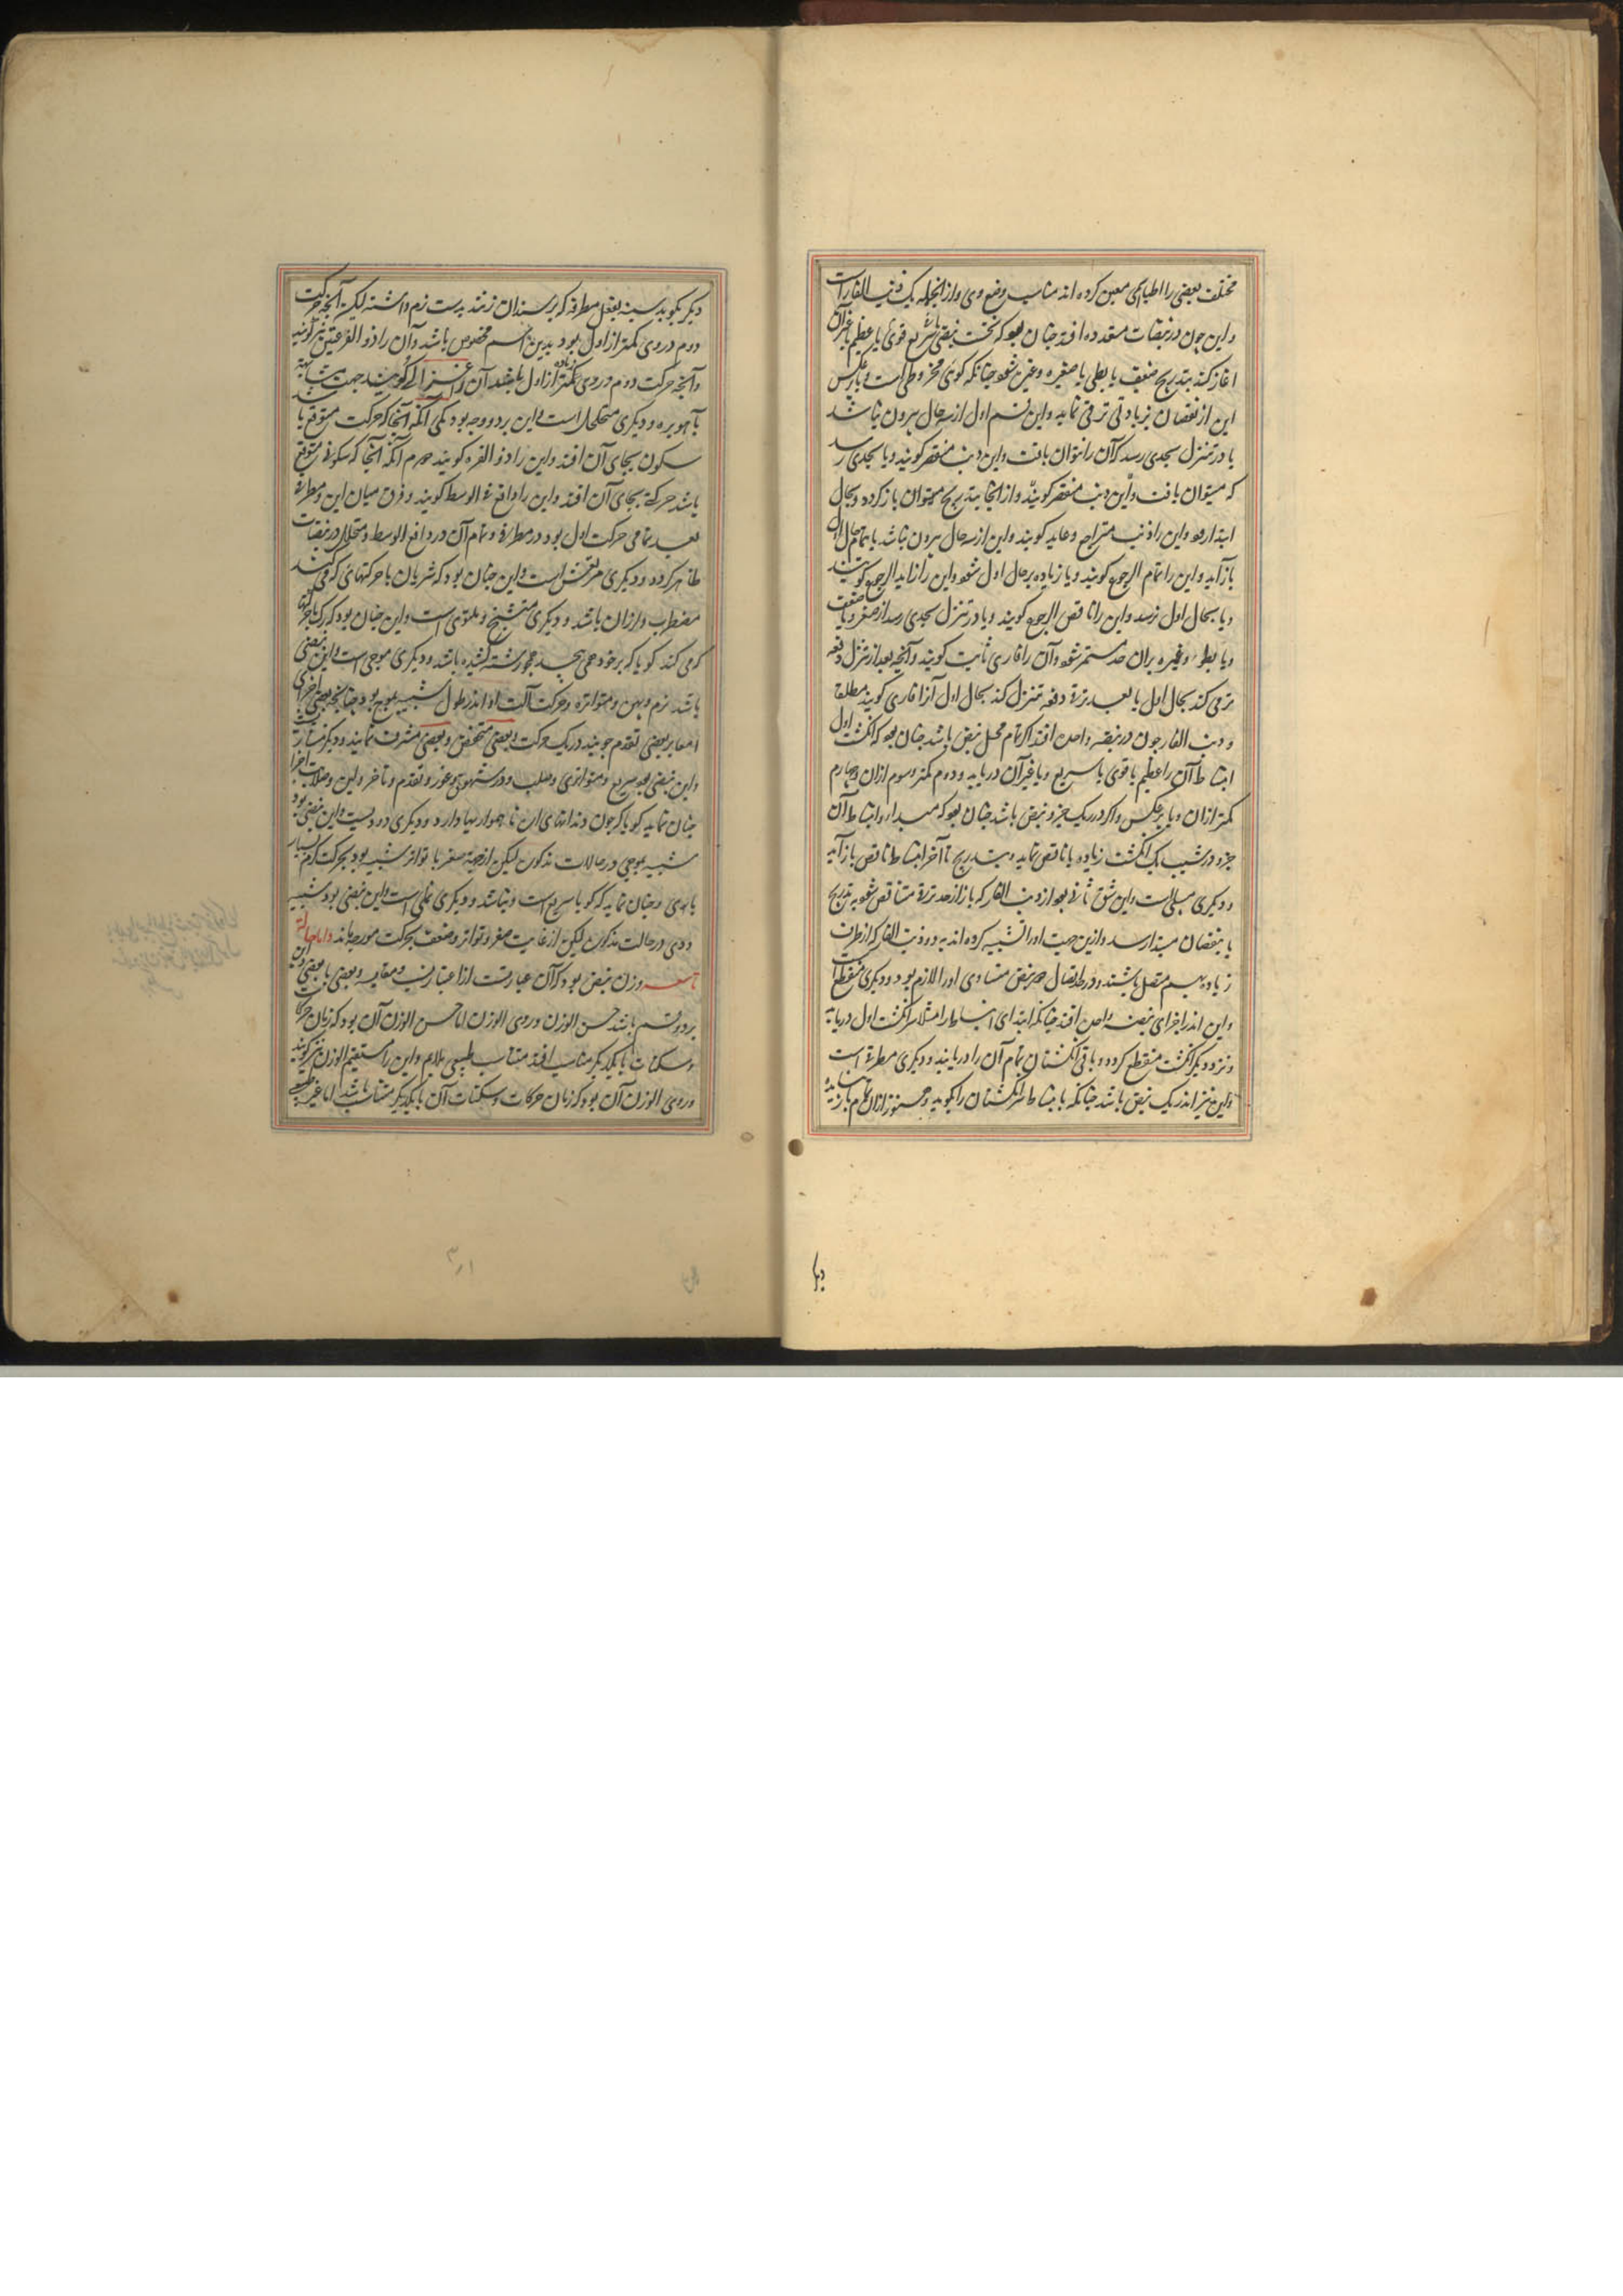 مختلف بعضی را اطبا اسمی معین کرده اند مناسب وضع وی و از انجمله یک ذنب الفار است
و این چون در نبضات متعدده افتد چنان بود که نخست نبضی سریع یا قوی یا عظیم یا غیر آن
اغاز کند بتدریج ضعیف یا بطی یا صغیر و غیره شود چنانکه گوئی مخروطی است و یا برعکس
این از نقصان بزیادتی ترقی نماید و این قسم اول از سه حال بیرون نباشد
یا در تنزل بحدی رسد که آن را نتوان یافت و این ذنب منقضی گویند و یا بحدی رسد
که میتوان یافت و این ذنب منقضی گویند و از انجا بتدریج میتوان باز گردد و بحال
ابتدا رود و این را ذنب متراجع و عاید گویند و این از سه حال بیرون نباشد یا بتمام حال اول
باز آید و این را تمام الرجوع گویند و یا زیاده بر حال اول شود و این را زاید الرجوع گویند
و یا بحال اول نرسد و این را ناقص الرجوع گویند و یا در تنزل بحدی رسد از صغر و یا ضعف
و یا بطوء و غیره بران حد مستمر شود و آن را فاری ثابت گویند و آنچه بعد از تنزل دفعه
ترقی کند بحال اول یا بعد ترقی دفعه تنزل کند بحال اول آنرا فاری گویند مطلقا
و ذنب الفار چون در نبضه واحده افتد اگر تمام محل نبض باشد چنان بود که انگشت اول
انبساط آن را عظیم یا قوی یا سریع و یا غیر آن دریابد و دوم کمتر و سوم ازان و چهارم
کمتر ازان و یا برعکس و اگر در یک جزو نبض باشد چنان بود که مبداء و انبساط آن
جزو در شیب یک انگشت زیاده یا ناقص نماید و بتدریج تا آخر انبساط ناقص باز آید
و دیگری مسلی است و این شق ثانی بود از ذنب الفار که باز از حد ترقی متناقص شود بتدریج
یا بنقصان مبدا رسد و ازین جهت او را تشبیه کرده اند به دو ذنب الفار که از طرف
زیاد بهم متصل باشند و در حد اتصال هر نبض متساوی او را لازم بود و دیگری منقطع است
و این اندر اجزای نبضه واحده افتد چنانکه ابتدای انبساط را مثلا سر انگشت اول دریابد
و نزد دیگر انگشت منقطع گردد و باقی انگشتان تمام آن را دریابند و دیگری مطرقی است
و این نیز اندر یک نبض باشد چنانکه بانبساط سر انگشتان را بکوبد و هنوز ازان تمام باز
دیگر بکوبد سینه بفعل مطرقه که بر سندان زنند بدست نرم داشته لیکن آنچه حرکت
دوم در وی کمتر از اول بود بدین اسم مخصوص باشد و آن را ذو القرعتین نیز گویند
و آنچه حرکت دوم در وی زیاده از اول باشد آن را غزالی گویند جهت مشابهت
بآهو بره و دیگری متخلخل است و این بر دو وجه بود یکی آنکه آنجا که حرکت متوقع با
سکون بجای آن افتد و این را ذو الفتره گویند دوم آنکه آنجا که سکونی متوقع
باشد حرکتی بجای آن افتد و این را واقع فی الوسط گویند و فرق میان این و مطرقی
بعد تمامی حرکت اول بود در مطرقی و تمام آن در واقع الوسط و متخلل در نبضات
ظاهر گردد و دیگری مرتعش است و این چنان بود که شریان با حرکتهای که می کند
مضطرب و لرزان باشد و دیگری متشنج و ملتوی است و این چنان بود که رگ با حرکتها
که می کند گویا که بر خود می پیچد همچو رشته کشیده باشد و دیگری موجی است و این نبضی
باشد نرم و پهن و متواتره و حرکت آلت او اندر طول شبیه بموج بود چنانچه بعضی اجزای
امعا بر بعضی تقدم جویند در یک حرکت و بعضی منخفض و بعضی مشرف نمایند و دیگر منشاریست
و این نبضی بود سریع و متواتری و صلب و در شهوق و غور و تقدم و تاخر و لین و صلابت اجزا
چنان نماید گویا که چون دندانهای اره ناهمواریها دارد و دیگری دودیست و این نبضی بود
شبیه بموجی در حالات مذکور لیکن از جهت صغر با تواتر شبیه بود بحرکت کرم بسیار
پای و چنان نماید که گویا سریع است و نباشد و دیگری نملی است و این نبضی بود شبیه
دودی در حالت مذکور لیکن از غایت صغر و تواتر و ضعف بحرکت مورچه ماند و اما حالت
تاسعه وزن نبض بود که آن عبارتست از اعتبار نسب و مقایسه و بعضی با بعضی و آن
بر دو قسم باشد حسن الوزن و ردی الوزن اما حسن الوزن آن بود که زمان حرکات
و سکنات با یکدیگر مناسب افتد مناسب طبیعی ملایم و این را مستقیم الوزن نیز گویند
و ردی الوزن آن بود که زمان حرکات و سکنات آن با یکدیگر مناسب باشد اما غیر طبیعی